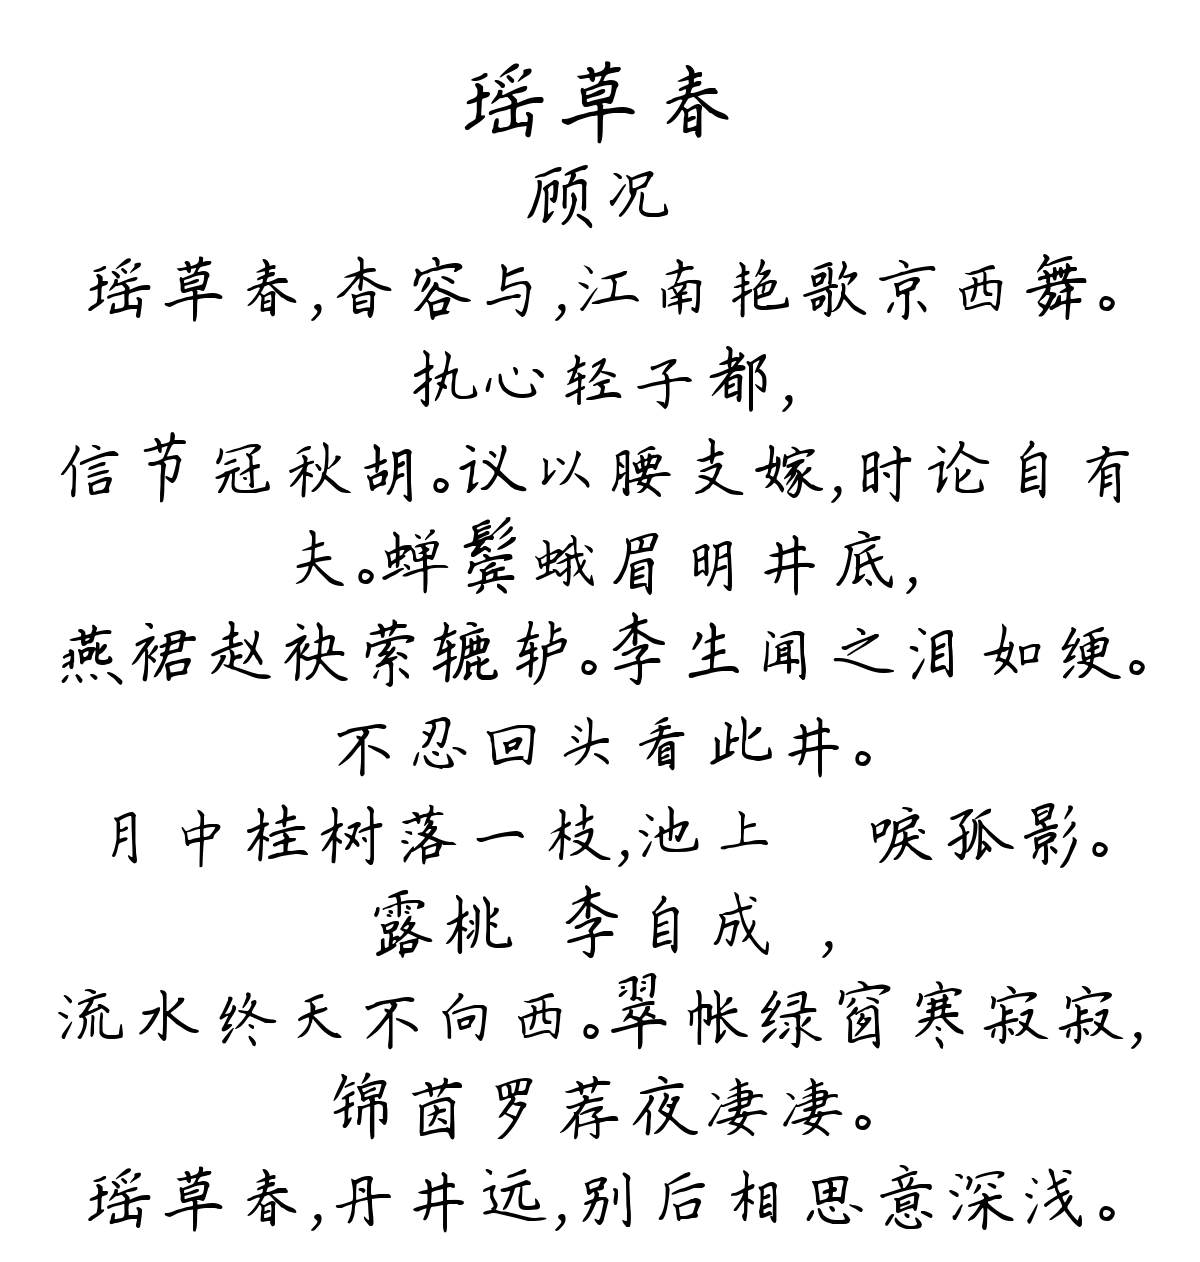 瑶草春
顾况
瑶草春,杳容与,江南艳歌京西舞。
执心轻子都,
信节冠秋胡。议以腰支嫁,时论自有
夫。蝉鬓蛾眉明井底,
燕裙赵袂萦辘轳。李生闻之泪如绠。
不忍回头看此井。
月中桂树落一枝,池上 唳孤影。
露桃 李自成 ,
流水终天不向西。翠帐绿窗寒寂寂,
锦茵罗荐夜凄凄。
瑶草春,丹井远,别后相思意深浅。